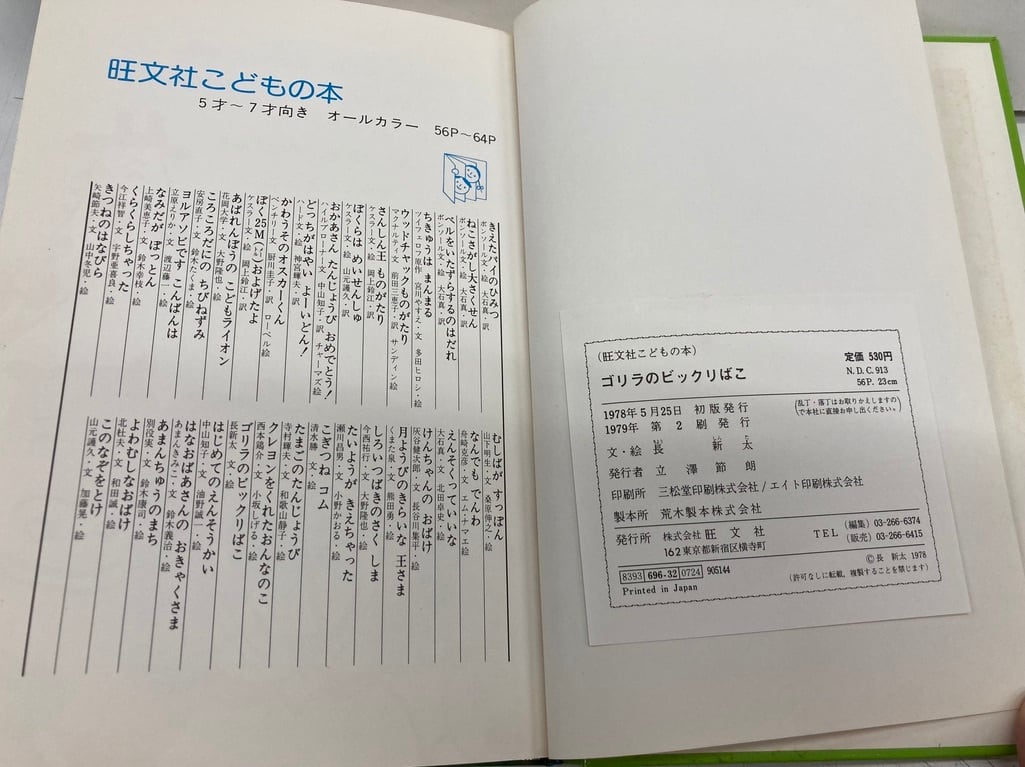 旺文社こどもの本
5才〜7才向き オールカラー 56P〜64P
きえたパイのひみつ
ボンソール・文・絵 大石真・訳
ねこさがし大さくせん
ボンソール・文・絵 大石真・訳
ベルをいたずらするのはだれ
ボンソール・文・絵 大石真・訳
ちきゅうは まんまる
ツイフェロフ原作 宮川やすえ・文 多田ヒロシ・絵
ウッドチャックものがたり
マクナルティ・文 前田三恵子・訳 サンディン・絵
さんしん王 ものがたり
ケスラー文・絵 岡上鈴江・訳
ぼくらは めいせんしゅ
ケスラー文・絵 山元護久・訳
おかあさん たんじょうび おめでとう!
ハイルブローナー文 中山知子・訳 チャーマズ絵
どっちがはやい よーいどん!
ハード文・絵 神宮輝夫・訳
かわうそのオスカーくん
ベンチリー文 厨川圭子・訳 ローベル絵
ぼく25M(メートル)およげたよ
ケスラー文・絵 岡上鈴江・訳
あばれんぼうの こどもライオン
花岡大学・文 大野隆也・絵
ころころだにの ちびねずみ
安房直子・文 鈴木たくま・絵
ヨルアソビです こんばんは
立原えりか・文 渡辺藤一・絵
なみだが ぽっとん
上崎美恵子・文 鈴木幸枝・絵
くらくらしちゃった
今江祥智・文 宇野亜喜良・絵
きつねのはなびら
矢崎節夫・文 山中冬児・絵
むしばが すっぽん
山下明生・文 桑原伸之・絵
なんでも でんわ
舟崎克彦・文 エム・ナマエ絵
えんそくっていいな
大石真・文 北田卓史・絵
けんちゃんの おばけ
灰谷健次郎・文 長谷川集平・絵
月ようびのきらいな 王さま
くまた泉・文 熊田勇・絵
しろいつばきのさく しま
今西祐行・文 大野隆也・絵
たいようが きえちゃった
瀬川昌男・文 小野かおる・絵
こぎつね コム
清水勝 文・絵
たまごのたんじょうび
寺村輝夫・文 和歌山静子・絵
クレヨンをくれたおんなのこ
西本鶏介・文 小坂しげる・絵
ゴリラのビックリばこ
長新太 文・絵
はじめてのえんそうかい
中山知子・文 油野誠一・絵
はなおばあさんの おきゃくさま
あまんきみこ・文 鈴木義治・絵
あまんちゅうのまち
別役実・文 鈴木康司・絵
よわむしなおばけ
北杜夫・文 和田誠・絵
このなぞをとけ
山元護久・文 加藤晃・絵
(旺文社こどもの本)
定価 530円
ゴリラのビックリばこ
N.D.C. 913
56P. 23cm
1978年5月25日 初版発行
1979年 第2刷発行
(乱丁・落丁はお取りかえしますので本社に直接お申し出ください。)
文・絵 長 新 太
発行者 立澤節朗
印刷所 三松堂印刷株式会社/エイト印刷株式会社
製本所 荒木製本株式会社
発行所 株式会社 旺文社
162東京都新宿区横寺町
TEL (編集) 03-266-6374
(販売) 03-266-6415
©長 新太 1978
8393 696-32 0724 905144
(許可なしに転載, 複製することを禁じます)
Printed in Japan